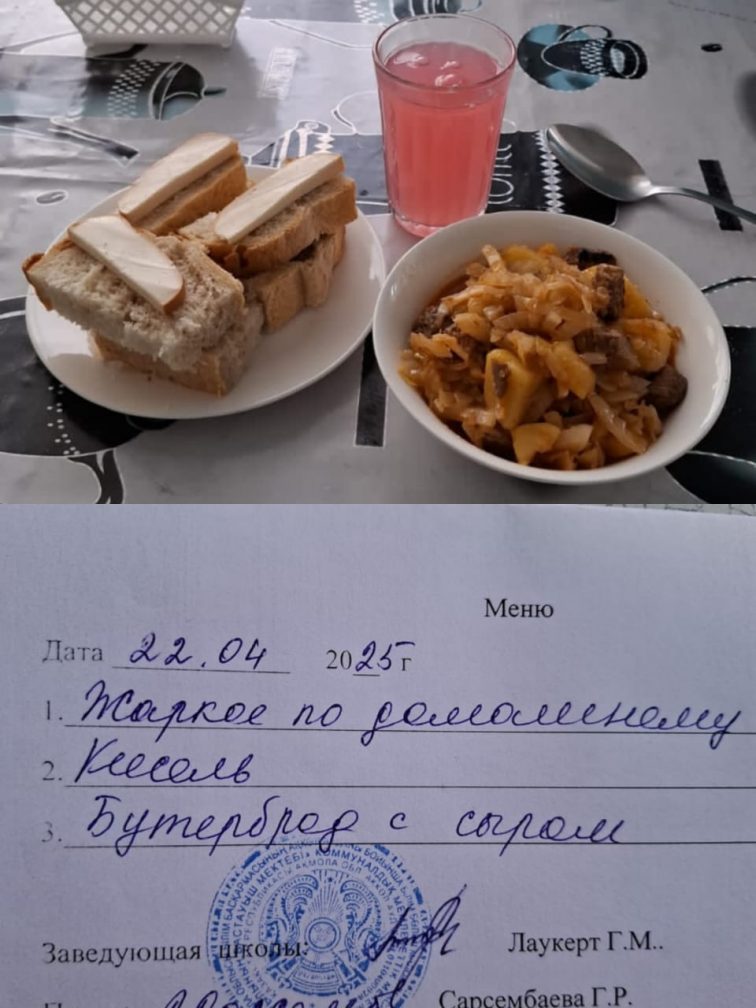 Меню
Дата 22.04 2025 г
1. Жаркое по домашнему
2. Кисель
3. Бутерброд с сыром
Заведующая школы: Лаукерт Г.М..
Сарсембаева Г.Р.